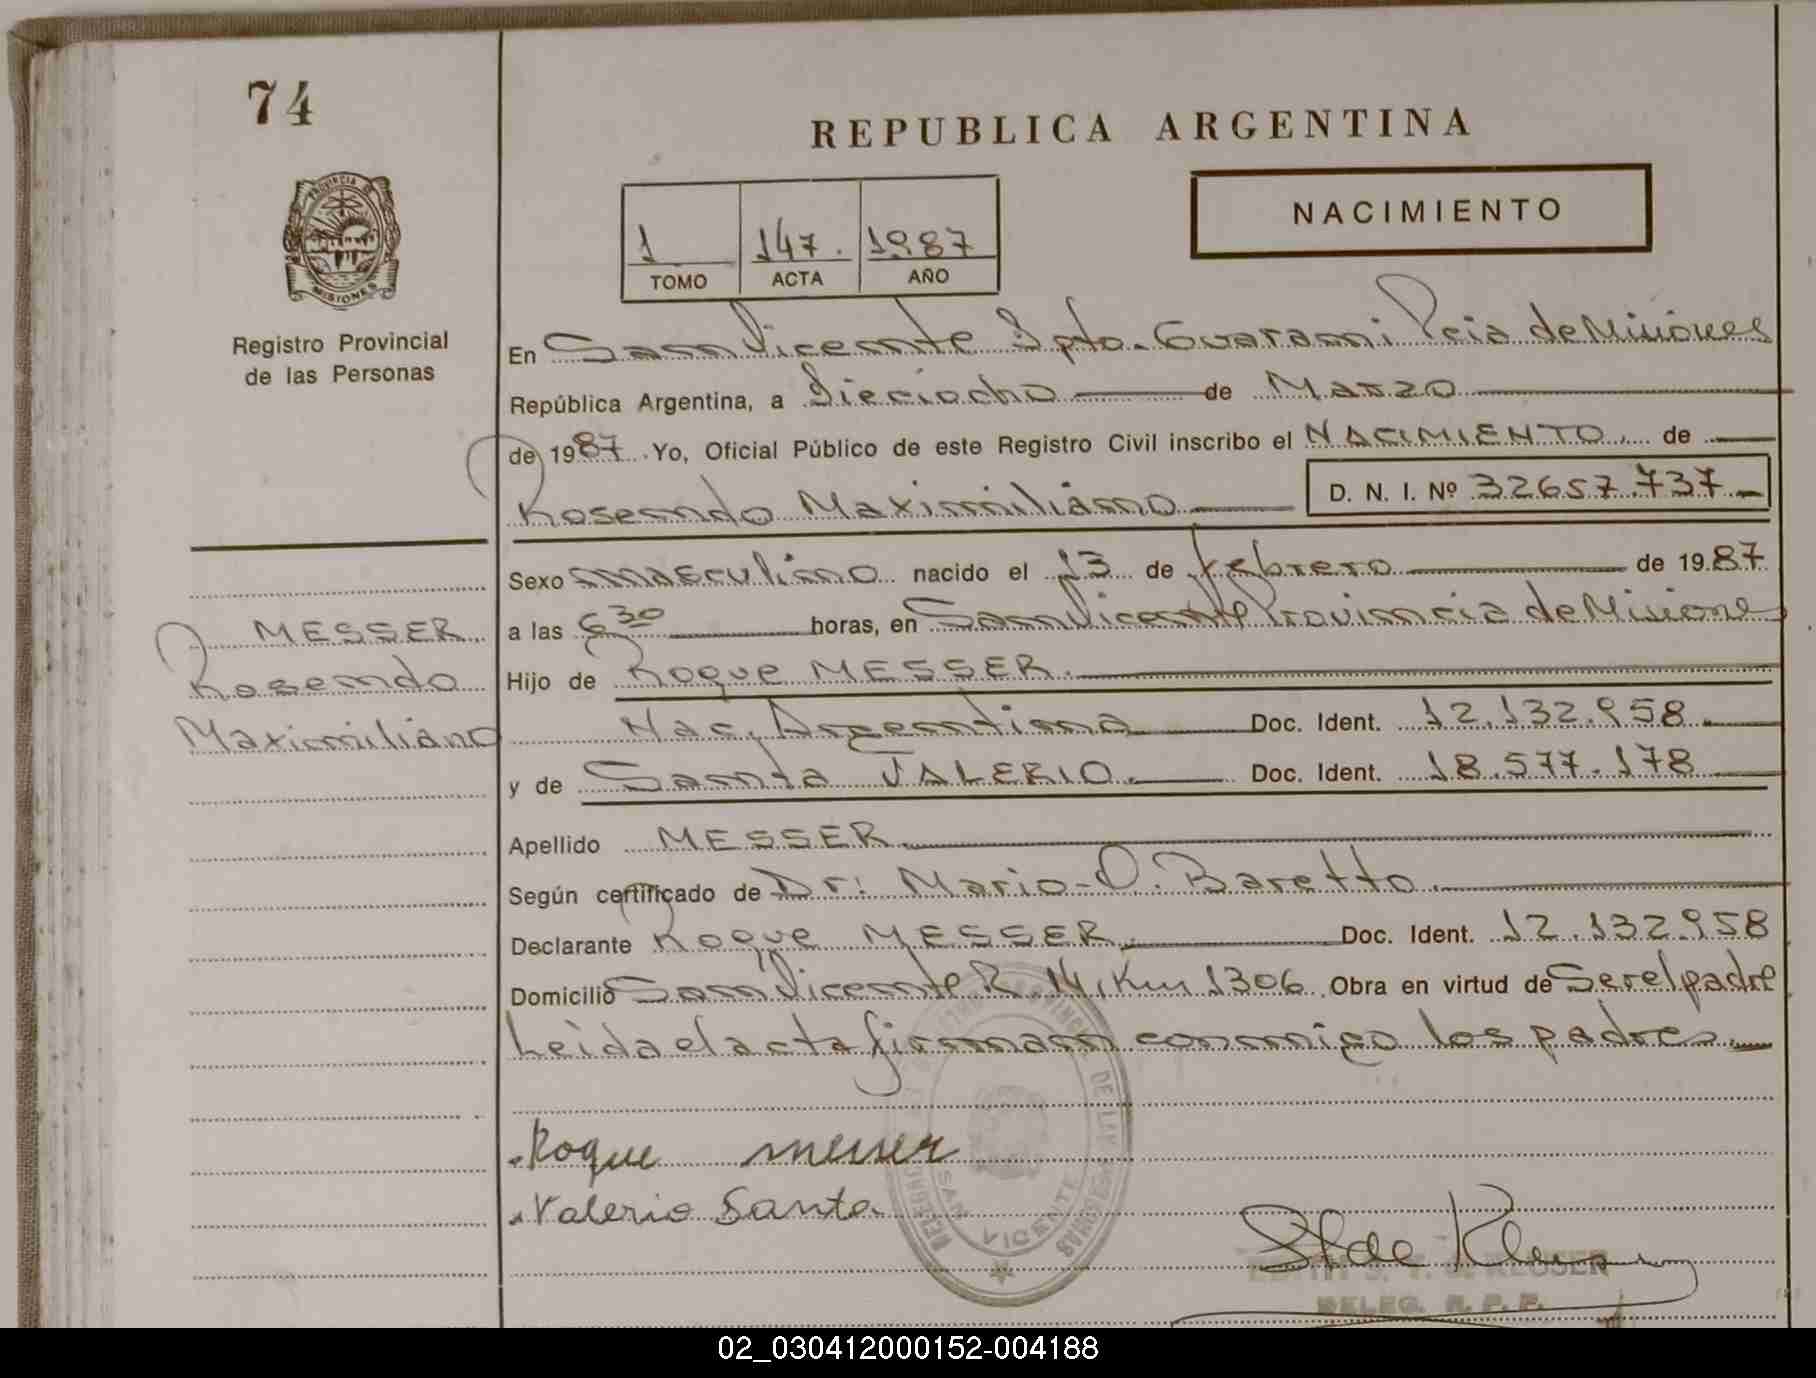 74
REPUBLICA ARGENTINA
NACIMIENTO
PROVINCIA DE
MISIONES
Registro Provincial
de las Personas
1 147. 1987
TOMO ACTA AÑO
En San Vicente Dpto. Guarani Pcia de Misiones
República Argentina, a Dieciocho de Marzo
de 1987. Yo, Oficial Público de este Registro Civil inscribo el NACIMIENTO de
Rosendo Maximiliano D. N. I. Nº 32657.737
Sexo masculino nacido el 13 de febrero de 1987
MESSER
Rosendo
Maximiliano
a las 6 30 horas, en San Vicente Provincia de Misiones
Hijo de Roque MESSER.
Nac. Argentina Doc. Ident. 12.132.958
y de Santa VALERIO. Doc. Ident. 18.577.178
Apellido MESSER
Según certificado de Dr: Mario O. Baretto.
Declarante Roque MESSER. Doc. Ident. 12.132.958
Domicilio San Vicente R. 14, Km 1306 Obra en virtud de Ser el padre
Leida el acta firman conmigo los padres.
Roque messer
Valerio Santa
DE LAS PERSONAS
SAN VICENTE
DELEG. R. P. P.
02_030412000152-004188